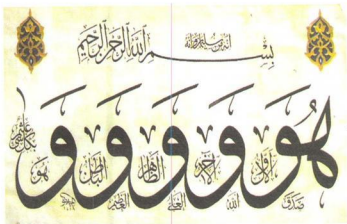 إنه من سليمان وإنه
بسم الله الرحمن الرحيم
هو الأول والآخر والظاهر والباطن وهو بكل شيء عليم
صدق الله العلي العظيم